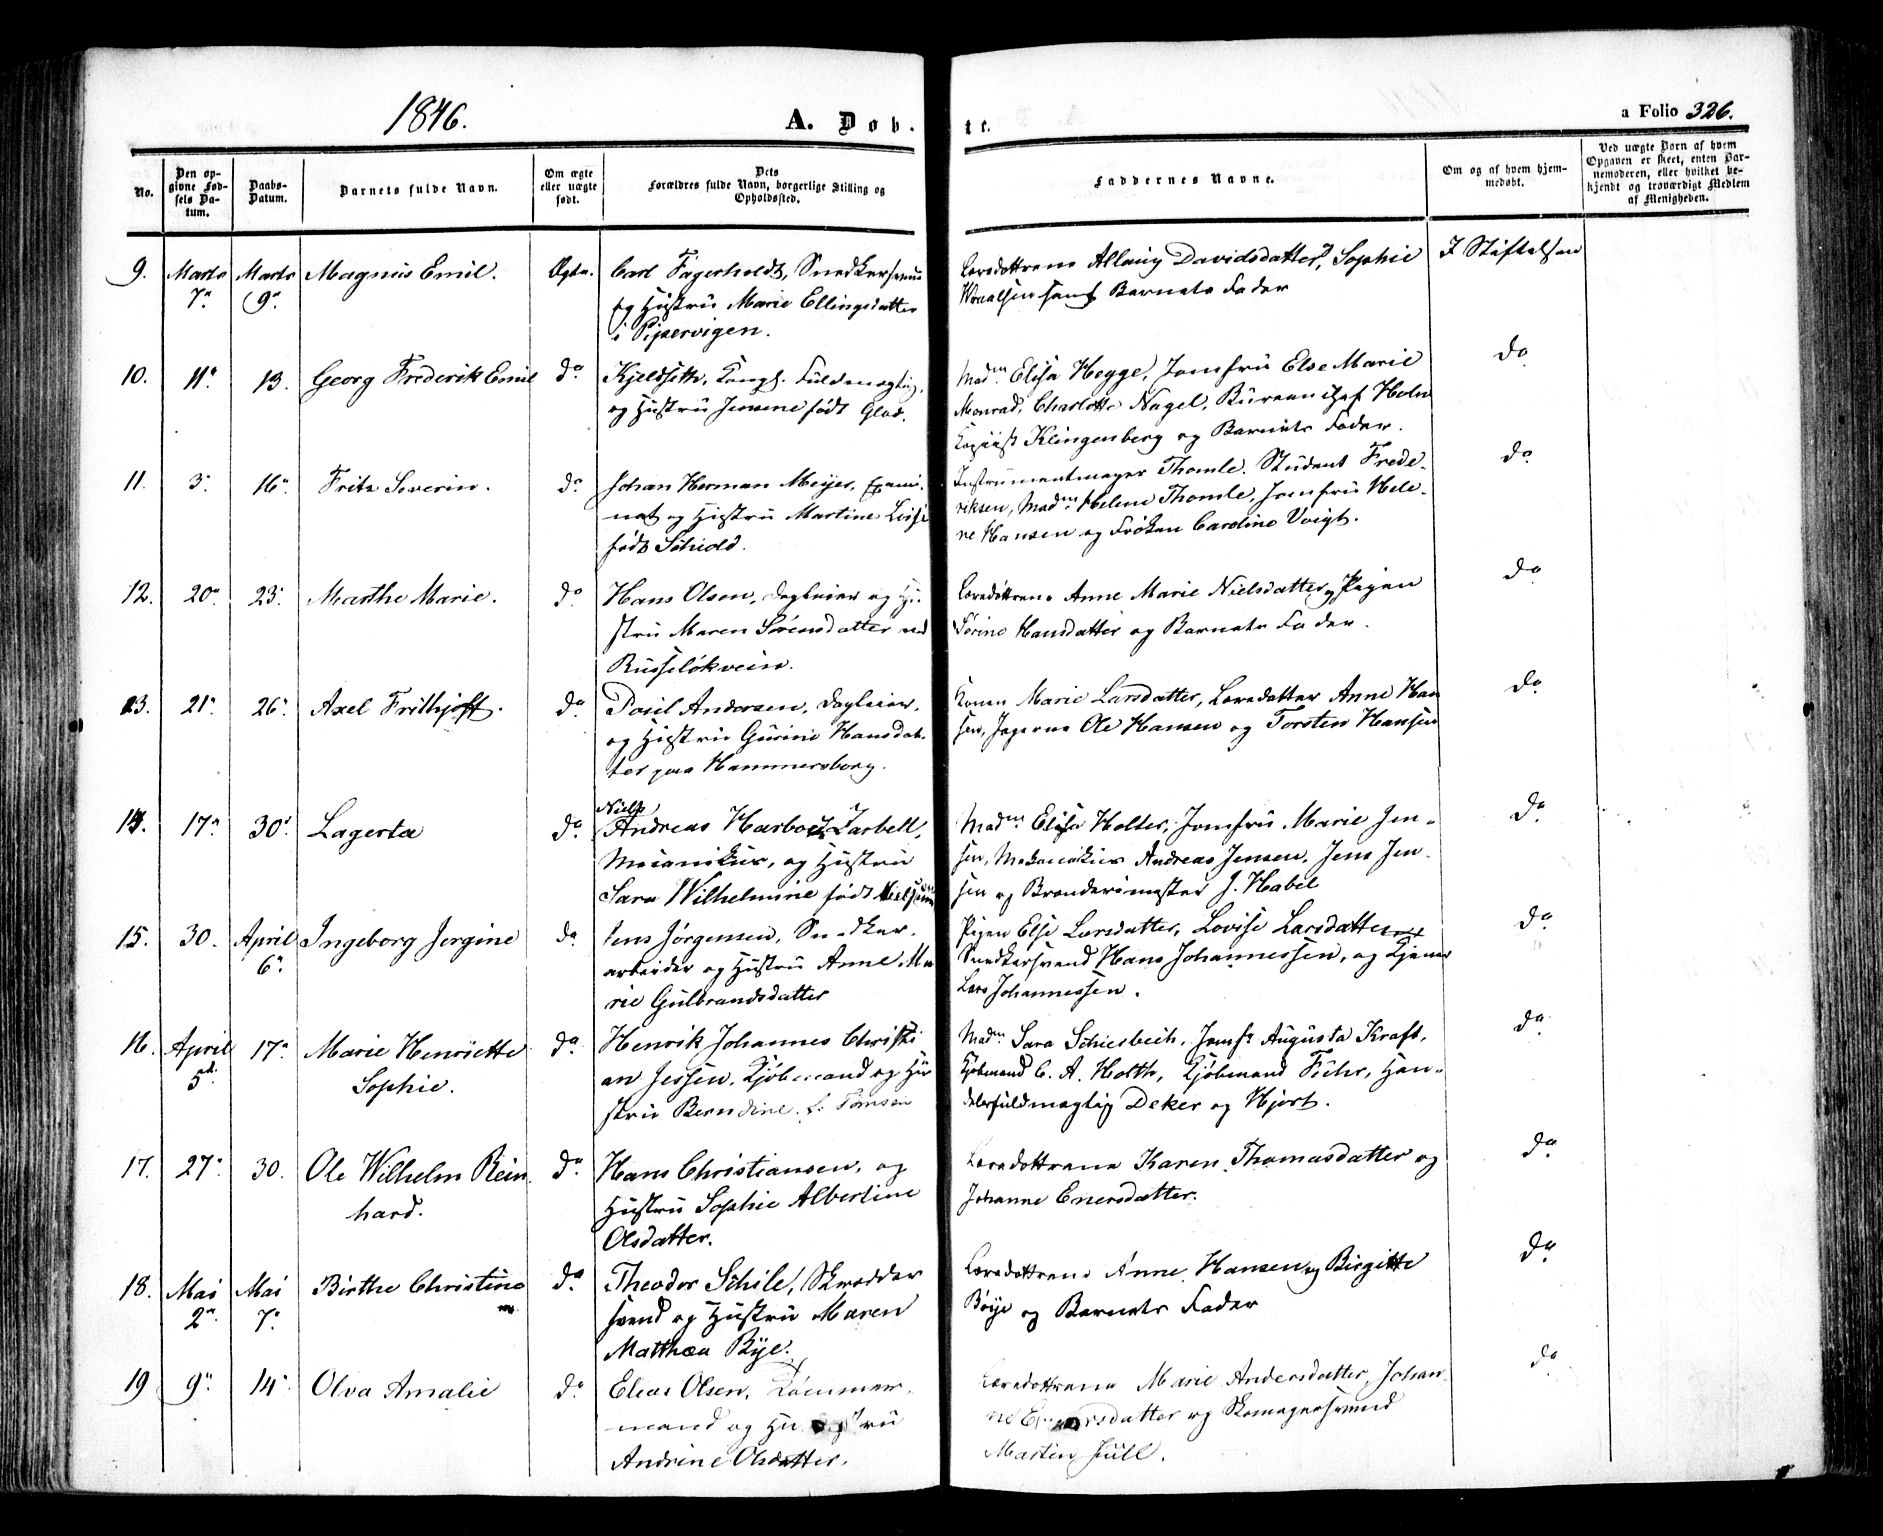 1846.
A. Døb-
te.
a Folio 326.
No.
Den op-
givne Fød-
sels Da-
tum.
Daabs-
Datum.
Barnets fulde Navn.
Om ægte
eller uægte
født.
Dets
Forældres fulde Navn, borgerlige Stilling og
Opholdssted.
Faddernes Navne.
Om og af hvem hjem-
medøbt.
Ved uægte Barn af hvem
Opgaven er skeet, enten Bar-
nemoderen, eller hvilket be-
kjendt og troværdigt Medlem
af Menigheden.
9. Marts Marts Magnus Emil. Ægte. Carl Fagerholdt, Snedkersvend
7. 9. og Hustru Marie Ellingsdatter
i Pipervigen.
Læredøttrene Davidsdatter, Sophie
samt Barnets Fader
I Stiftelsen
10. 11. 13. Georg Frederik Emil do Kjeldseth, Kongl. Fuldmægtig,
og Hustru Jensine født Glad.
Madm Elisa Hegge, Jomfru Else Marie
Monrad, Charlotte Nagel, Bureauchef Holm
Kopiist Klingenberg og Barnets Fader.
do
11. 3. 16. Fritz Severin. do Johan Herman Meyer, Exami-
nat og Hustru Martine Lovise
født Schiold.
Instrumentmager Thomle. Student Frede-
riksen, Madm Helene Thomle, Jomfru Hele-
ne Hansen og Frøken Caroline Voigt.
do
12. 20. 23. Marthe Marie. do Hans Olsen, Dagleier og Hu-
stru Maren Sørensdatter ved
Ruseløkvein.
Læredøttrene Anne Marie Nielsdatter, Pigen
Sørine Hansdatter og Barnets Fader.
do
13. 21. 26. Axel Frithjoff. do Poul Andersen, Dagleier,
og Hustru Gurine Hansdat-
ter paa Hammersborg.
Konen Marie Larsdatter, Læredatter Anne Han
sen, Jægerne Ole Hansen og Torsten Hansen
do
14. 17. 30. Lagerta do Niels
Andreas Harboe Jarbell,
Mecanikus, og Hustru
Sara Wilhelmine født Nielsen
Madm Elisa Holter, Jomfru Marie Jen-
sen, Mekanikus Andreas Jensen, Jens Jen-
sen og Brænderimester J. Habel
do
15. 30. April Ingeborg Jorgine do Jens Jørgensen, Snedker-
6. arbeider og Hustru Anne Ma
rie Gulbrandsdatter
Pigen Else Larsdatter, Lovise Larsdatter
Snedkersvend Hans Johannessen, og Tjener
Lars Johannessen.
do
16. April 17. Marie Henriette do Henrik Johannes Christi
5. Sophie. an Jessen, Kjøbmand og Hu
stru Berndine f. Tønsen
Madm Sara Schiesbech, Jomf Augusta Kraft,
Kjøbmand C. A. Holth, Kjøbmand Fuhr, Han-
delsfuldmægtig Deker og Hjort.
do
17. 27. 30. Ole Wilhelm Rein do Hans Christiansen, og
hard. Hustru Sophie Albertine
Olsdatter.
Læredøttrene Karen Thomasdatter og
Johanne Enersdatter.
do
18. Mai Mai Birthe Christine do Theodor Schile, Skrædder
2. 7. svend og Hustru Maren
Matthea Bye.
Læredøttrene Anne Hansen og Birgitte
Böye og Barnets Fader
do
19 9. 14. Olva Amalie do Elias Olsen, Tømmer-
mand og Hustru
Andrine Olsdatter.
Læredøttrene Marie Andersdatter, Johan-
ne og Skomagersvend
Martin Juell.
do